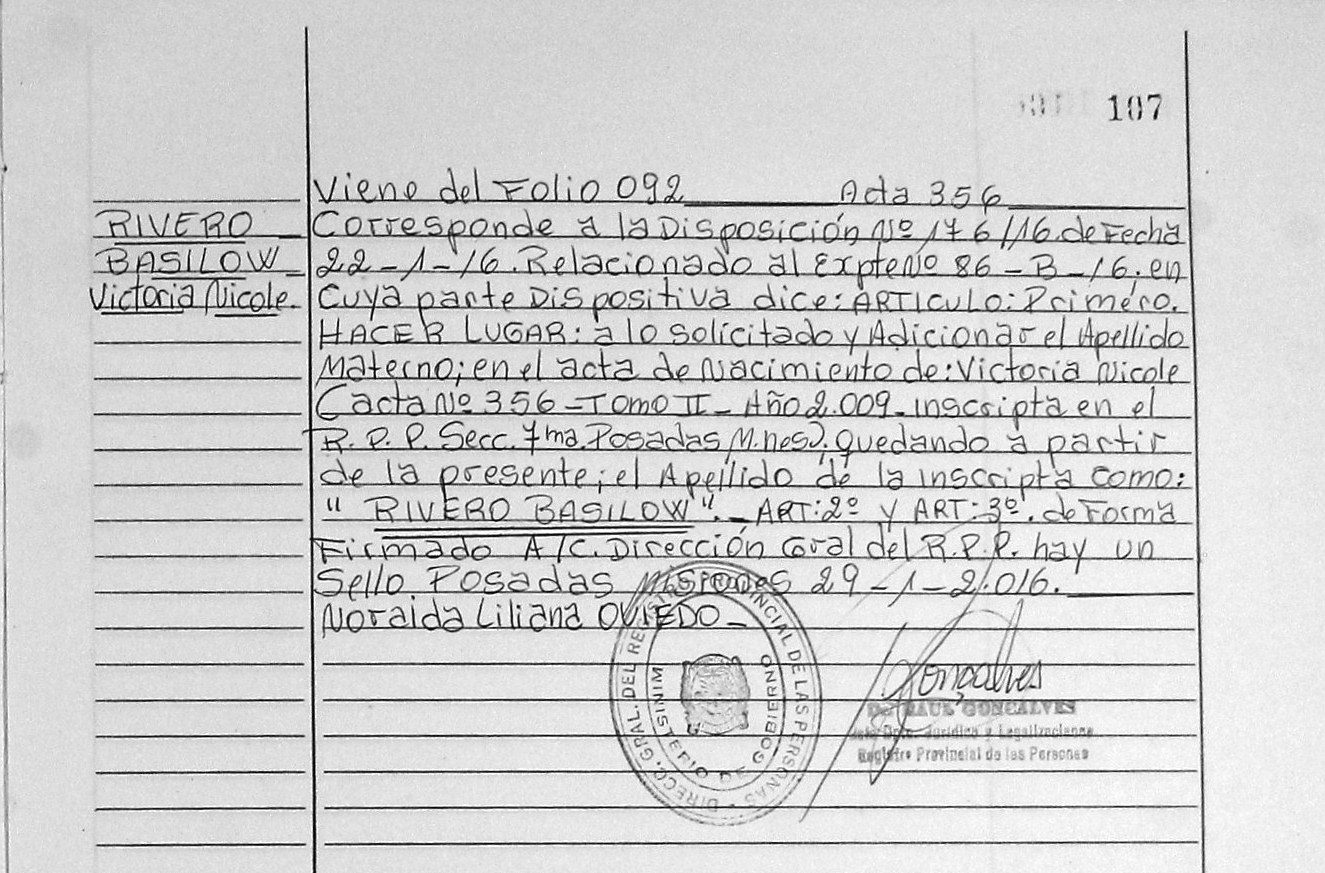 107
Viene del Folio 092 Acta 356
RIVERO
BASILOW
Victoria Nicole.
Corresponde a la Disposición Nº 176/16 de Fecha
22-1-16. Relacionado al Expte Nº 86-B-16; en
cuya parte Dispositiva dice: ARTICULO: Primero.
HACER LUGAR: a lo solicitado y Adicionar el Apellido
Materno; en el acta de Nacimiento de: Victoria Nicole
(acta Nº 356 - Tomo II - Año 2.009 - inscripta en el
R.P.P. Secc. 7ma. Posadas M.nes); quedando a partir
de la presente; el Apellido de la inscripta como:
"RIVERO BASILOW". - ART: 2º y ART: 3º. de Forma
Firmado A/C. Dirección Gral del R.P.P. hay un
Sello. Posadas Misiones 29-1-2.016.
Noraida Liliana OVIEDO -
DIRECC. GRAL. DEL REGISTRO PROVINCIAL DE LAS PERSONAS
MINISTERIO DE GOBIERNO
Goncalves
Dr. RAUL GONCALVES
Jefe Dpto. Jurídico y Legalizaciones
Registro Provincial de las Personas